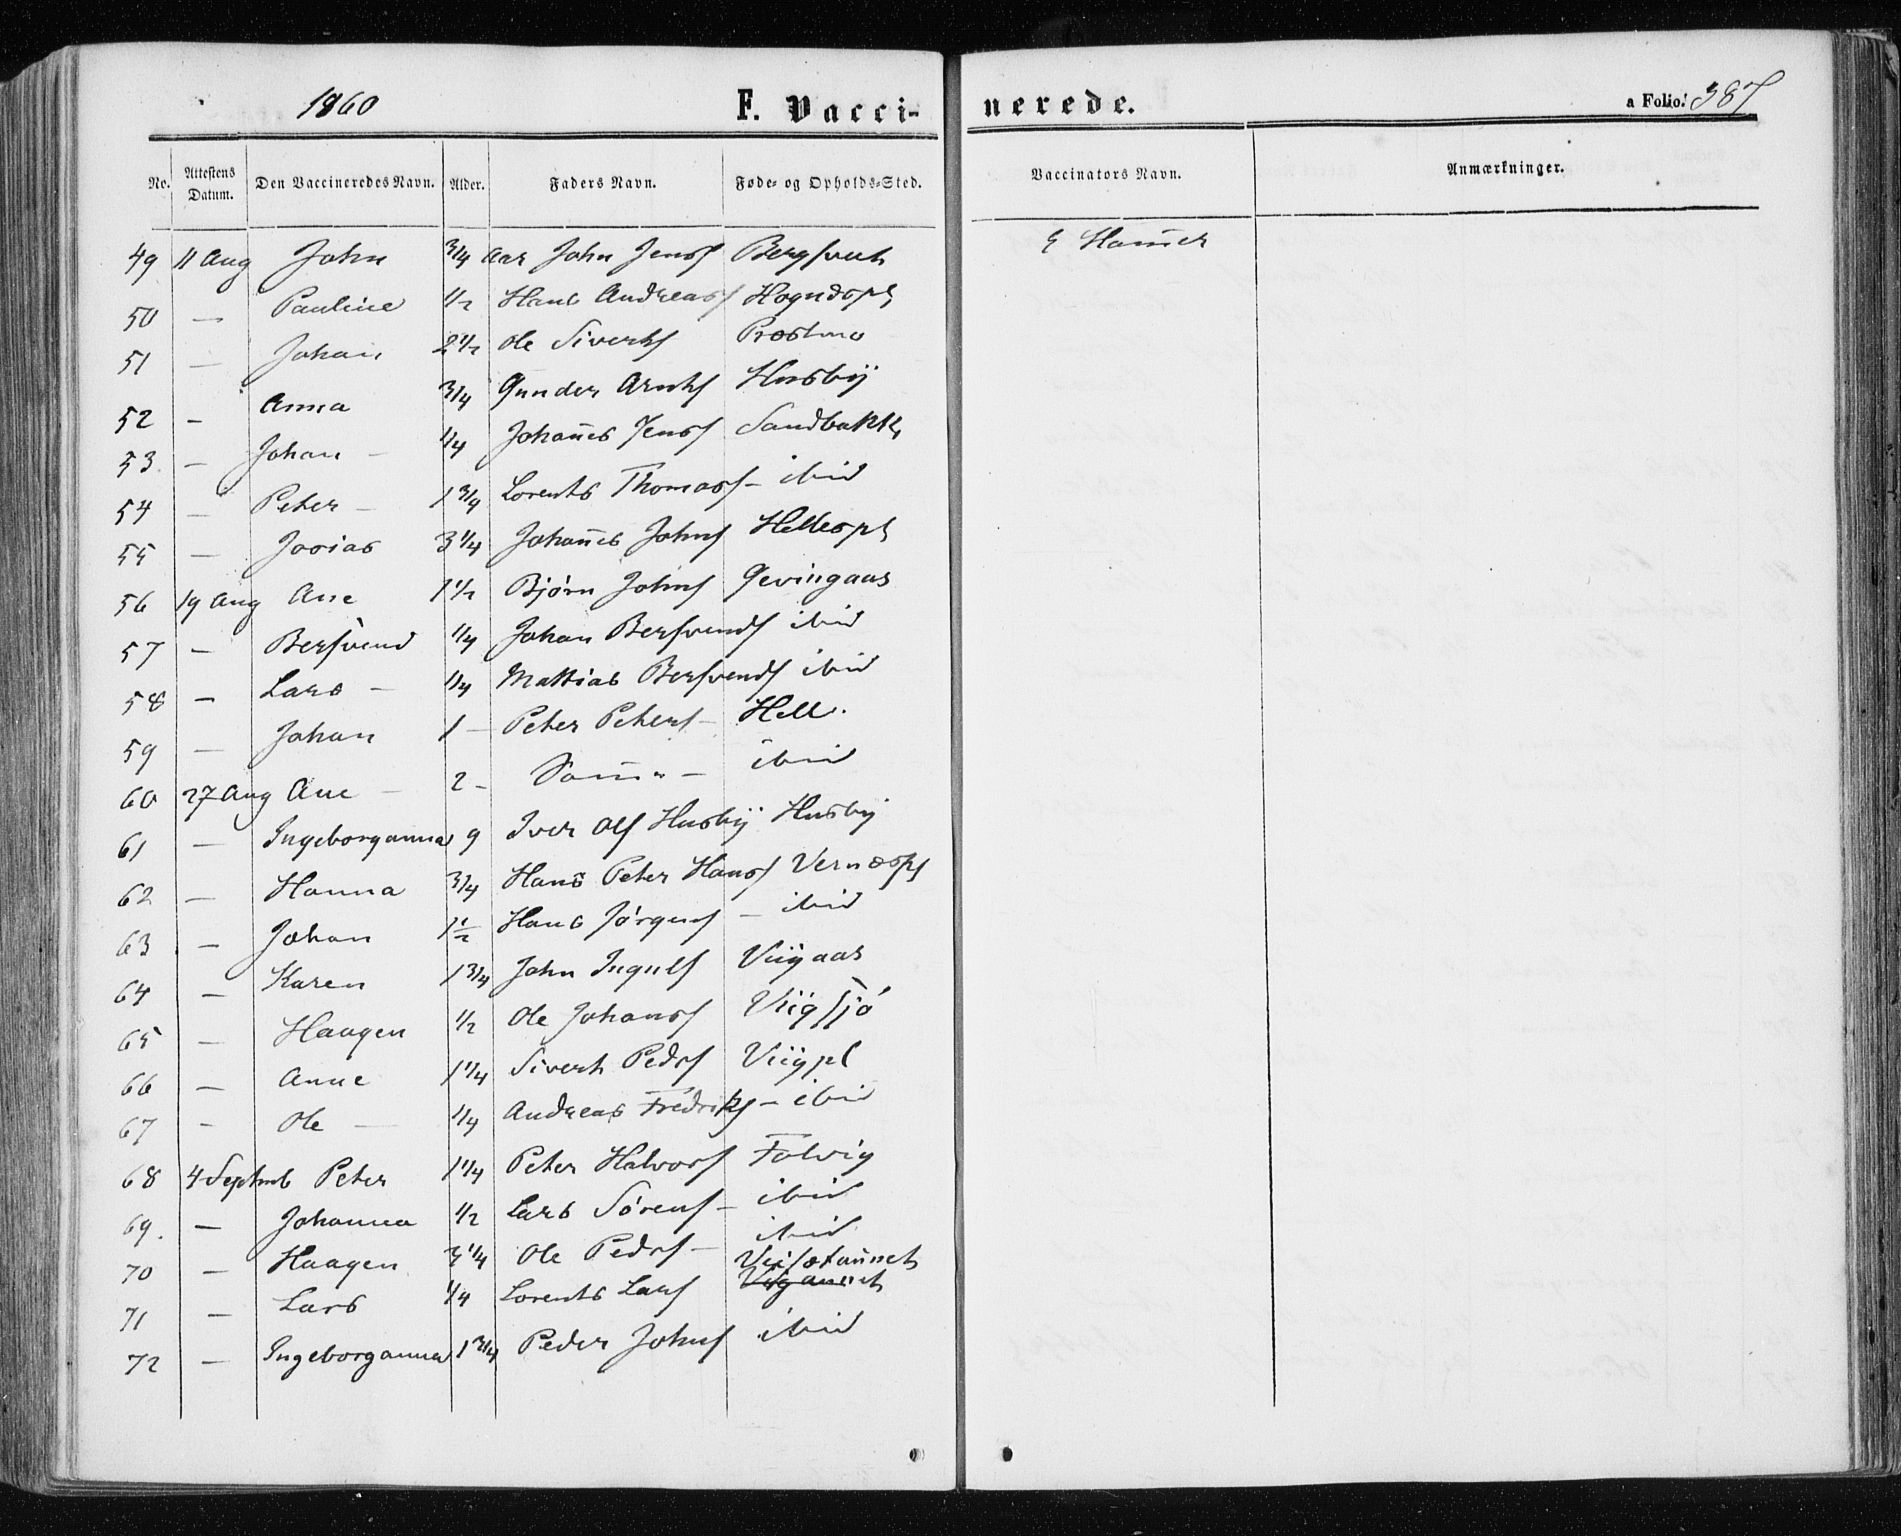 1860 F. Vaccinerede. a Folio! 387
No. Attestens Datum. Den Vaccineredes Navn. Alder. Faders Navn. Føde- og Opholds-Sted. Vaccinators Navn. Anmærkninger.
49 11 Aug John 3/4 Aar John Jensf E Hamer
50 — Pauline 1/2 Hans Andreasf Hognespl
51 — Johan 2 1/2 Ole Sivertsf Præstmo
52 — Anna 3/4 Gunder Arntsf Husbÿ
53. — Johan — 1/4 Johan̄es Jensf Sandbakk
54 — Peter — 1 3/4 Lorents Thomasf — ibid
55 — Josias 3 1/4 Johan̄es Johnsf Hellespl
56 19 Aug Ane 1 1/2 Bjørn Johnsf Gevingaas
57 — Bersvend 1/4 Johan Bersvendsf ibid
58 — Lars — 1/4 Mattias Bersvendsf ibid
59 — Johan 1 — Peter Petersf — Hell.
60 27 Aug Ane — 2 — Sam̄e — ibid
61 — Ingeborganna 9 Iver Olsf Husbÿ Husbÿ
62 — Hanna 3/4 Hans Peter Hansf Vernæspl
63 — Johan 1 1/2 Hans Jørgensf — ibid
64 — Karen 1 3/4 John Ingulsf Viigaas
65 — Haagen 1/2 Ole Johansf
66 — Anne 1 1/4 Sivert Pedsf Viigpl
67 — Ole — 1/4 Andreas Fredriksf — ibid
68 4 Septmb Peter 1 1/4 Peter Halvorsf Folvig
69. — Johanna 1/2 Lars Sørensf — ibid
70 — Haagen 3 1/4 Ole Pedsf — ibid
71 — Lars 1/4 Lorents Larsf
72 — Ingeborganna 1 3/4 Peder Johnsf ibid